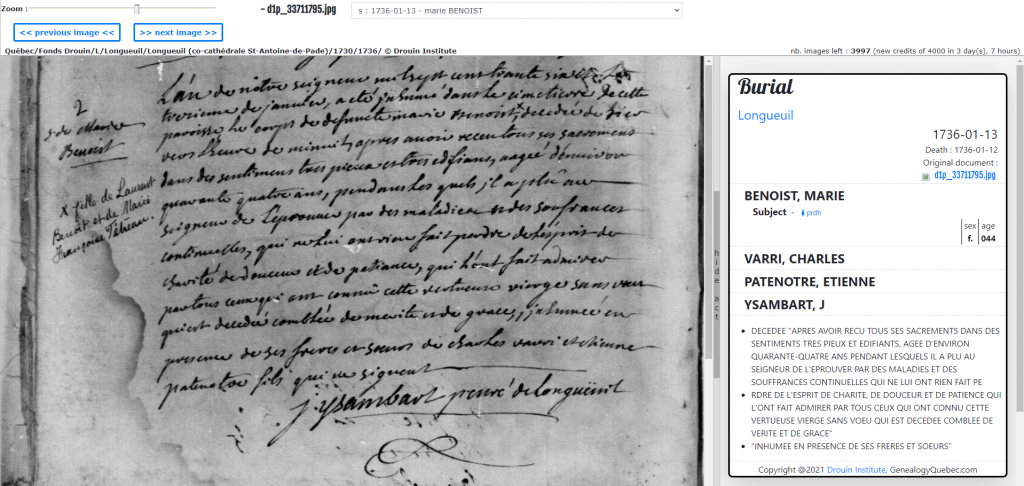 Zoom :
- d1p_33711795.jpg
s : 1736-01-13 - marie BENOIST
<< previous image <<
>> next image >>
Québec/Fonds Drouin/L/Longueuil/Longueuil (co-cathédrale St-Antoine-de-Pade)/1730/1736/ © Drouin Institute
nb. images left : 3997 (new credits of 4000 in 3 day(s), 7 hours)
2
s. de Marie
Benoist
x fille de Laurent
Benoit et de Marie
Françoise Tétreau.
L'an de nôtre seigneur mil sept cens trante six le
treizieme de janvier, a eté inhumé dans le cimetiere de cette
paroisse le corps de defuncte marie Benoist, x decedée de hier
vers l'heure de minuit, apres avoir receu tous ses sacremens
dans des sentimens tres pieux et tres edifians, aagée d'environ
quarante quatre ans, pendans les quels, il a plû au
seigneur de l'eprouver par des maladies et des soufrances
continuelles, qui ne lui ont rien fait perdre de l'esprit de
charité de douceur et de patiance, qui l'ont fait admirer
par tous ceux qui ont connu cette vertueuse vierge sans vœu
qui est decedée comblée de merite et de grace, inhumée en
presence de ses freres et sœurs de charles varri et etienne
patenotre fils qui ne signent
j. ysambart p. curé de Longueuil
hide act
Burial
Longueuil
1736-01-13
Death : 1736-01-12
Original document :
d1p_33711795.jpg
BENOIST, MARIE
Subject - prdh
sex age
f. 044
VARRI, CHARLES
PATENOTRE, ETIENNE
YSAMBART, J
DECEDEE "APRES AVOIR RECU TOUS SES SACREMENTS DANS DES
SENTIMENTS TRES PIEUX ET EDIFIANTS, AGEE D'ENVIRON
QUARANTE-QUATRE ANS PENDANT LESQUELS IL A PLU AU
SEIGNEUR DE L'EPROUVER PAR DES MALADIES ET DES
SOUFFRANCES CONTINUELLES QUI NE LUI ONT RIEN FAIT PE
RDRE DE L'ESPRIT DE CHARITE, DE DOUCEUR ET DE PATIENCE QUI
L'ONT FAIT ADMIRER PAR TOUS CEUX QUI ONT CONNU CETTE
VERTUEUSE VIERGE SANS VOEU QUI EST DECEDEE COMBLEE DE
VERITE ET DE GRACE"
"INHUMEE EN PRESENCE DE SES FRERES ET SOEURS"
Copyright @2021 Drouin Institute, GenealogyQuebec.com